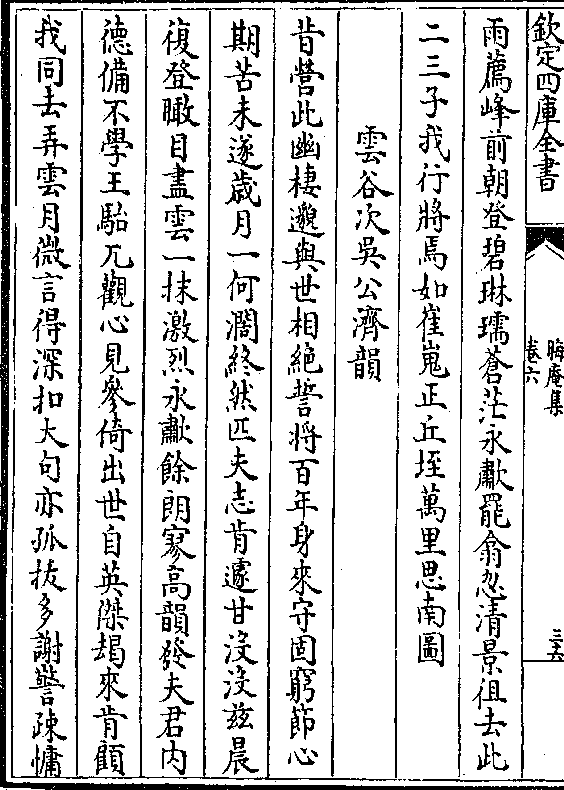 欽定四庫全書
晦庵集
卷六
三六
雨薦峰前朝登碧琳㻽蒼茫永歗罷翕忽清景徂去此
二三子我行將焉如崔嵬正丘垤萬里思南圖
雲谷次吳公濟韻
昔營此幽棲邈與世相絶誓将百年身來守固窮節心
期苦未遂歳月一何濶終然匹夫志肯遽甘没没兹晨
復登瞰目盡雲一抹激烈永歗餘朗寥高韻發夫君内
德備不學王駘兀觀心見參倚出世自英傑朅來肯顧
我同去弄雲月微言得深扣大句亦孤拔多謝警疎慵